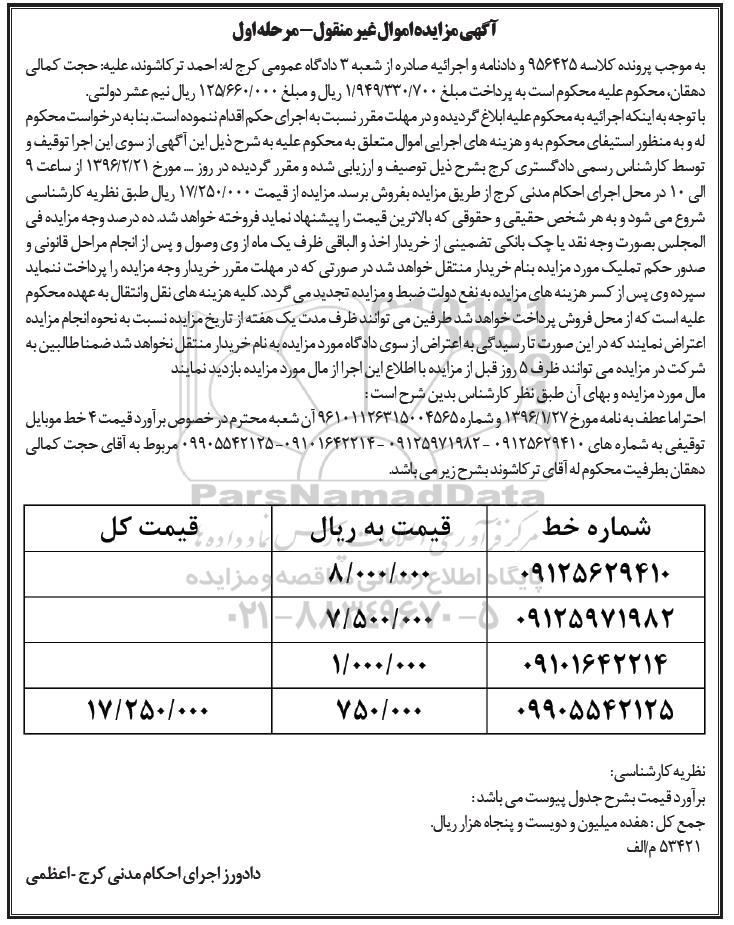 آگهی مزایده اموال غیر منقول – مرحله اول
به موجب پرونده کلاسه ۹۵۶۴۲۵ و دادنامه و اجرائیه صادره از شعبه ۳ دادگاه عمومی کرج له: احمد ترکاشوند، علیه: حجت کمالی
دهقان، محکوم علیه محکوم است به پرداخت مبلغ ۱/۹۴۹/۳۳۰/۷۰۰ ریال و مبلغ ۱۲۵/۶۶۰/۰۰۰ ریال نیم عشر دولتی.
با توجه به اینکه اجرائیه به محکوم علیه ابلاغ گردیده و در مهلت مقرر نسبت به اجرای حکم اقدام ننموده است. بنا به درخواست محکوم
له و به منظور استیفای محکوم به و هزینه های اجرایی اموال متعلق به محکوم علیه به شرح ذیل این آگهی از سوی این اجرا توقیف و
توسط کارشناس رسمی دادگستری کرج بشرح ذیل توصیف و ارزیابی شده و مقرر گردیده در روز .... مورخ ۱۳۹۶/۲/۲۱ از ساعت ۹
الی ۱۰ در محل اجرای احکام مدنی کرج از طریق مزایده بفروش برسد. مزایده از قیمت ۱۷/۲۵۰/۰۰۰ ریال طبق نظریه کارشناسی
شروع می شود و به هر شخص حقیقی و حقوقی که بالاترین قیمت را پیشنهاد نماید فروخته خواهد شد. ده درصد وجه مزایده فی
المجلس بصورت وجه نقد یا چک بانکی تضمینی از خریدار اخذ و الباقی ظرف یک ماه از وی وصول و پس از انجام مراحل قانونی و
صدور حکم تملیک مورد مزایده بنام خریدار منتقل خواهد شد در صورتی که در مهلت مقرر خریدار وجه مزایده را پرداخت ننماید
سپرده وی پس از کسر هزینه های مزایده به نفع دولت ضبط و مزایده تجدید می گردد. کلیه هزینه های نقل وانتقال به عهده محکوم
علیه است که از محل فروش پرداخت خواهد شد طرفین می توانند ظرف مدت یک هفته از تاریخ مزایده نسبت به نحوه انجام مزایده
اعتراض نمایند که در این صورت تا رسیدگی به اعتراض از سوی دادگاه مورد مزایده به نام خریدار منتقل نخواهد شد ضمنا طالبین به
شرکت در مزایده می توانند ظرف ۵ روز قبل از مزایده با اطلاع این اجرا از مال مورد مزایده بازدید نمایند
مال مورد مزایده و بهای آن طبق نظر کارشناس بدین شرح است :
احتراما عطف به نامه مورخ ۱۳۹۶/۱/۲۷ و شماره ۹۶۱۰۱۱۲۶۳۱۵۰۰۴۵۶۵ آن شعبه محترم در خصوص برآورد قیمت ۴ خط موبایل
توقیفی به شماره های ۰۹۱۲۵۶۲۹۴۱۰ – ۰۹۱۲۵۹۷۱۹۸۲ – ۰۹۱۰۱۶۴۲۲۱۴ – ۰۹۹۰۵۵۴۲۱۲۵ مربوط به آقای حجت کمالی
دهقان بطرفیت محکوم له آقای ترکاشوند بشرح زیر می باشد.
ParsNamadData
شماره خط قیمت به ریال قیمت کل
مرکز فرآوری اطلاعات پارس نماد داده ها
۰۹۱۲۵۶۲۹۴۱۰ ۸/۰۰۰/۰۰۰
پایگاه اطلاع رسانی مناقصه و مزایده
۰۹۱۲۵۹۷۱۹۸۲ ۷/۵۰۰/۰۰۰
۰۲۱-۸۸۳۴۹۶۷۰-۵
۰۹۱۰۱۶۴۲۲۱۴ ۱/۰۰۰/۰۰۰
۰۹۹۰۵۵۴۲۱۲۵ ۷۵۰/۰۰۰ ۱۷/۲۵۰/۰۰۰
نظریه کارشناسی:
برآورد قیمت بشرح جدول پیوست می باشد :
جمع کل : هفده میلیون و دویست و پنجاه هزار ریال.
۵۳۴۲۱ م/الف
دادورز اجرای احکام مدنی کرج - اعظمی